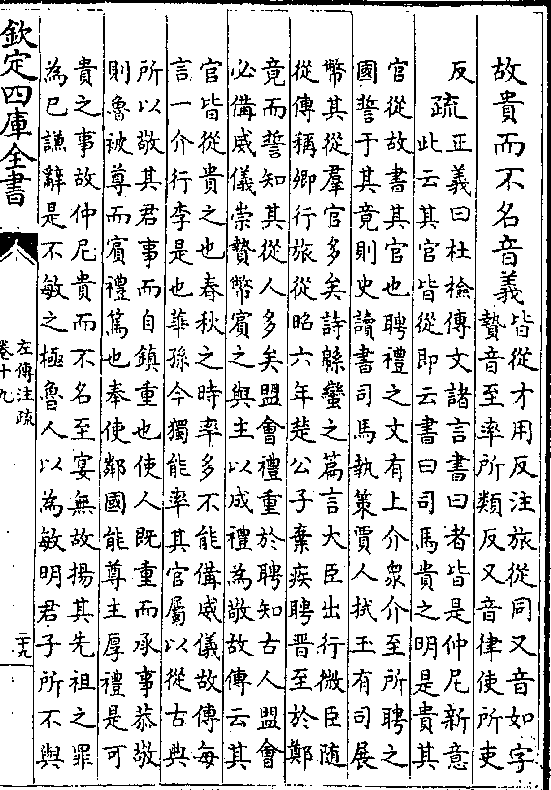 故貴而不名音義皆從才用反注旅從同又音如字
贄音至率所類反又音律使所吏
反疏正義曰杜檢傳文諸言書曰者皆是仲尼新意
此云其官皆從即云書曰司馬貴之明是貴其
官從故書其官也聘禮之文有上介衆介至所聘之
國誓于其竟則史讀書司馬執策賈人拭玉有司展
幣其從羣官多矣詩緜蠻之篇言大臣出行微臣隨
從傳稱卿行旅從昭六年楚公子棄疾聘晉至於鄭
竟而誓知其從人多矣盟會禮重於聘知古人盟會
必備威儀崇贄幣賓之與主以成禮為敬故傳云其
官皆從貴之也春秋之時率多不能備威儀故傳每
言一介行李是也華孫今獨能率其官屬以從古典
所以敬其君事而自鎮重也使人既重而承事恭敬
則魯被尊而賓禮篤也奉使鄰國能尊主厚禮是可
貴之事故仲尼貴而不名至宴無故揚其先祖之罪
為已謙辭是不敏之極魯人以為敏明君子所不與
欽定四庫全書
左傳注疏
卷十九
二十九